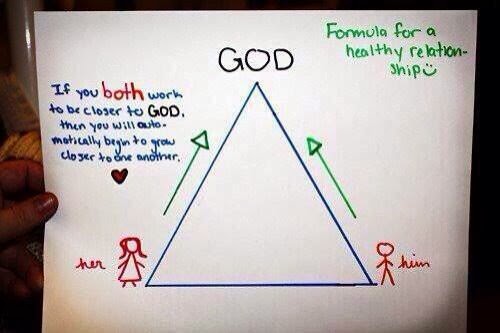 Formula for a
healthy relation-
ship
GOD
If you both work
to be closer to GOD,
then you will auto-
matically begin to grow
closer to one another.
her
him